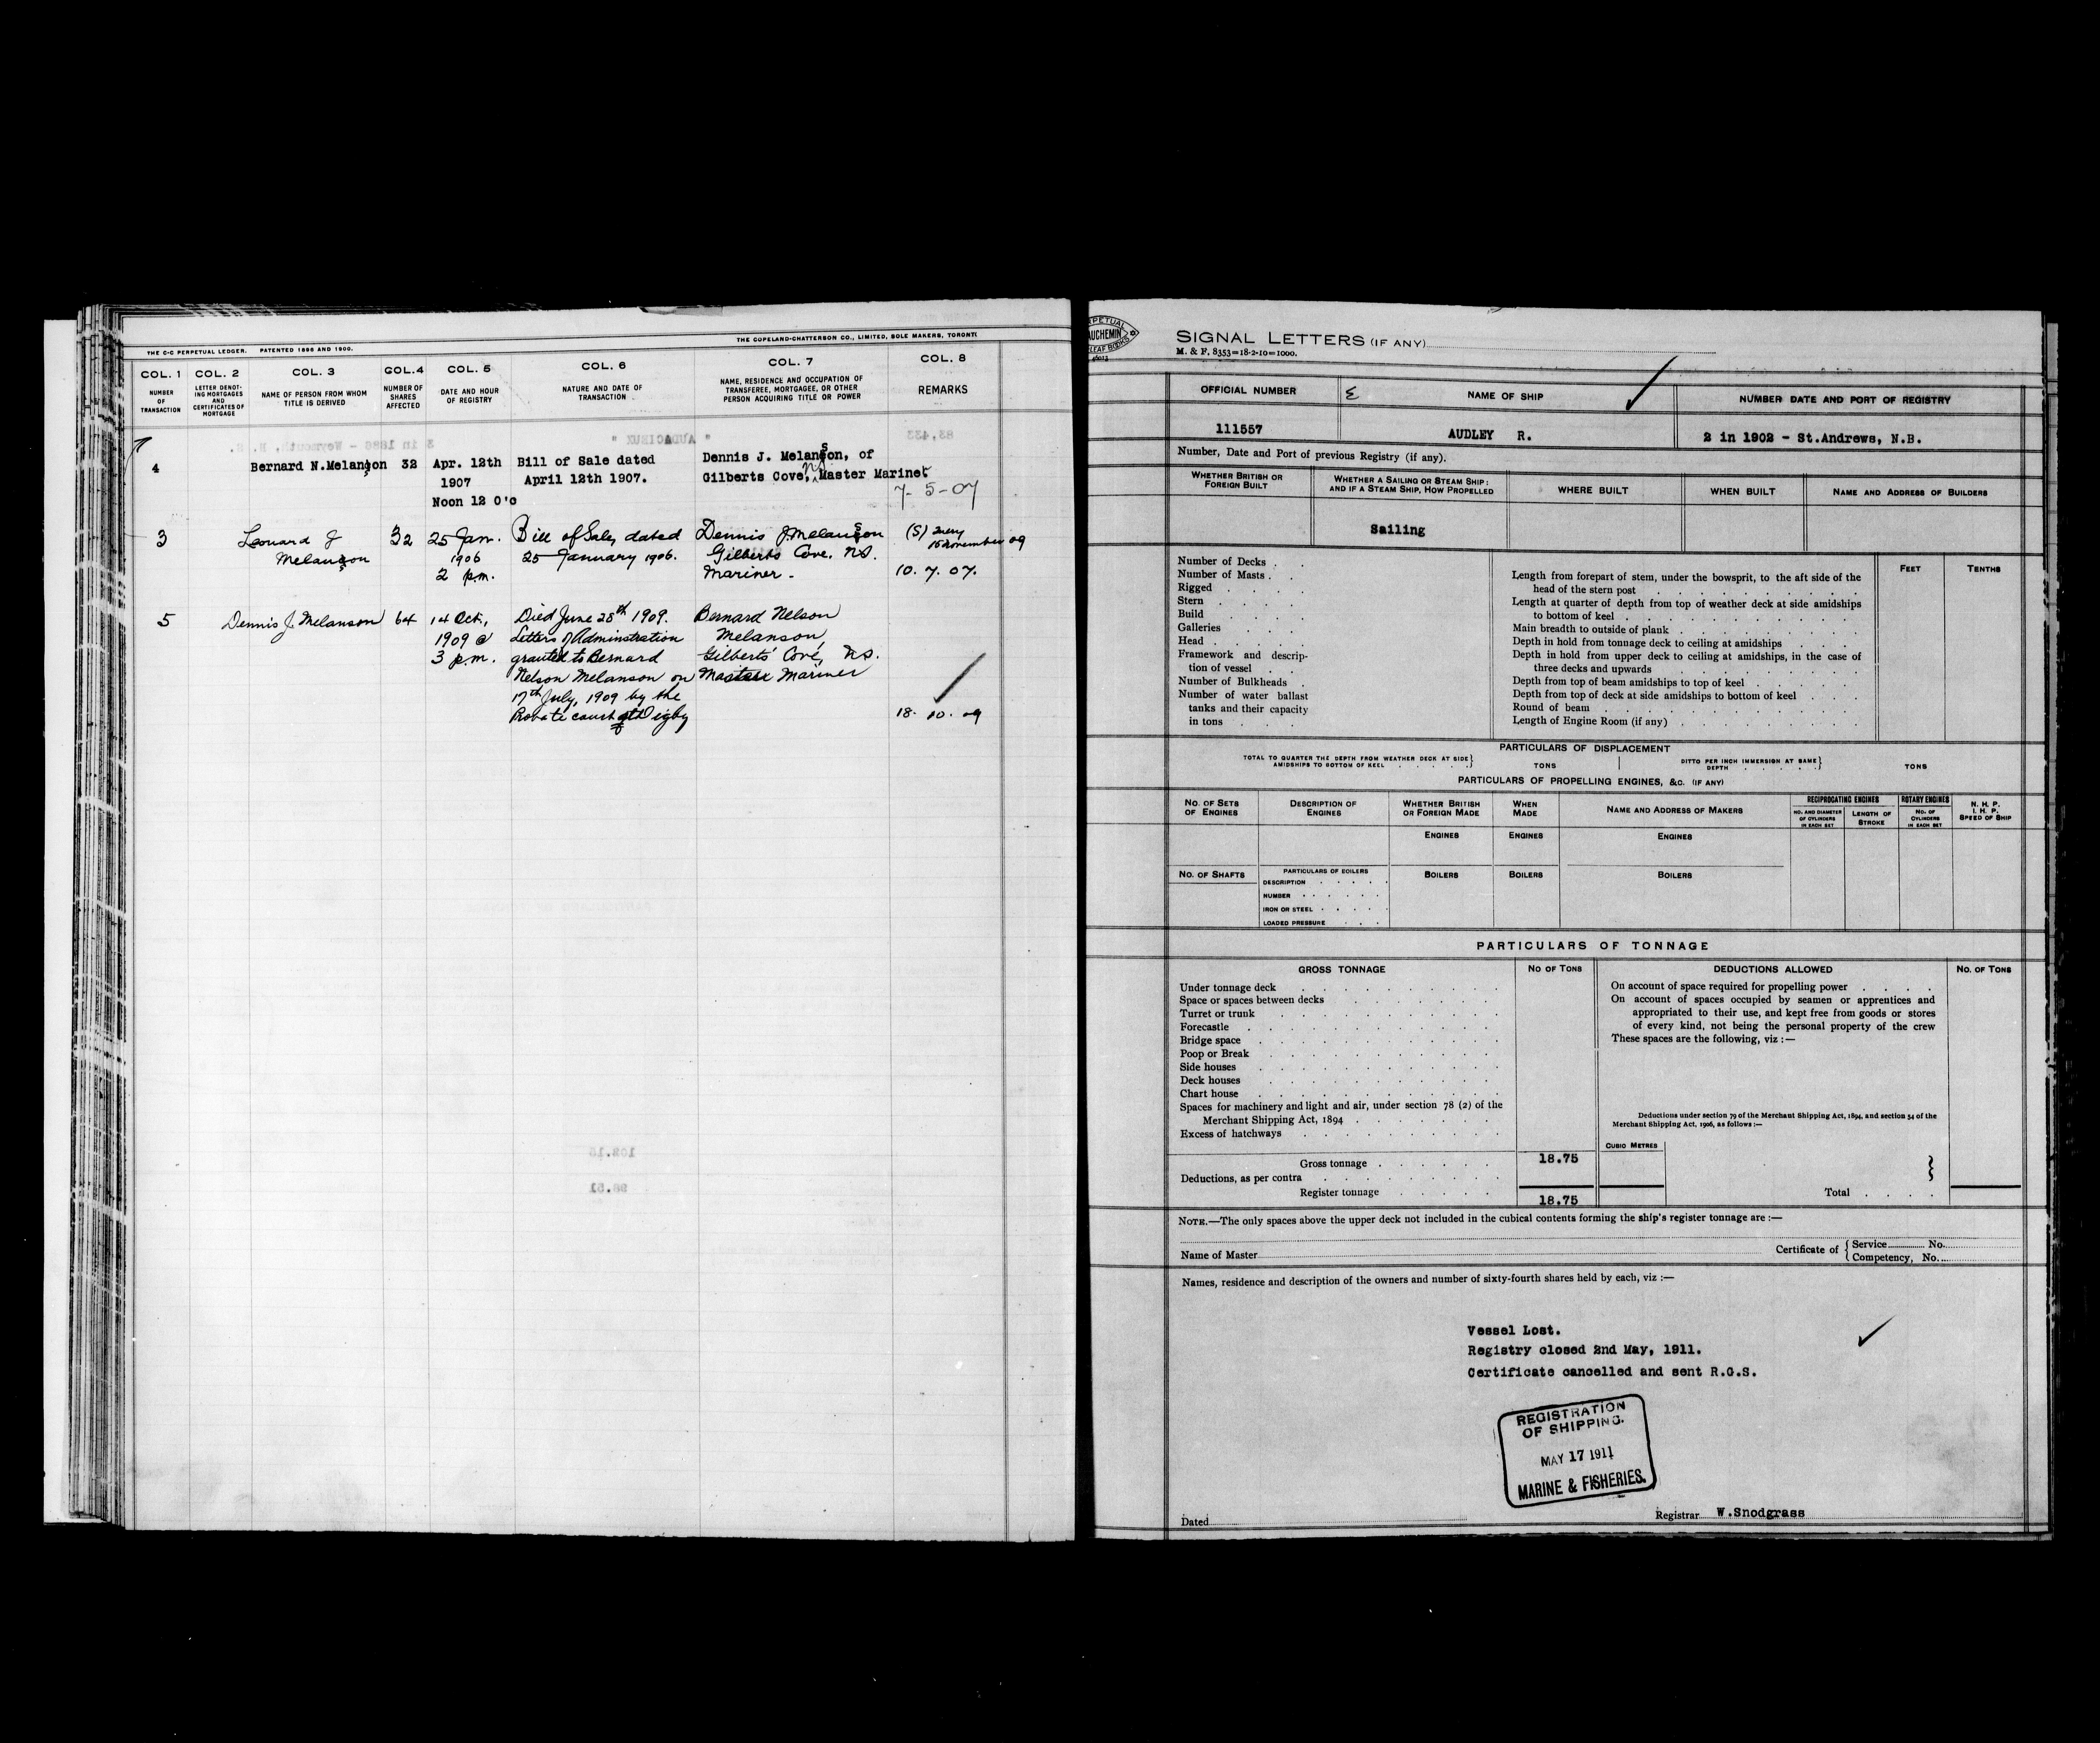 THE C-C PERPETUAL LEDGER. PATENTED 1896 AND 1900.
THE COPELAND-CHATTERSON CO., LIMITED, SOLE MAKERS, TORONTO
COL. 1 COL. 2 COL. 3 COL. 4 COL. 5 COL. 6 COL. 7 COL. 8
NUMBER OF TRANSACTION
LETTER DENOTING MORTGAGES AND CERTIFICATES OF MORTGAGE
NAME OF PERSON FROM WHOM TITLE IS DERIVED
NUMBER OF SHARES AFFECTED
DATE AND HOUR OF REGISTRY
NATURE AND DATE OF TRANSACTION
NAME, RESIDENCE AND OCCUPATION OF TRANSFEREE, MORTGAGEE, OR OTHER PERSON ACQUIRING TITLE OR POWER
REMARKS
4 Bernard N. Melanson 32 Apr. 12th Bill of Sale dated Dennis J. Melanson, of
1907 April 12th 1907. Gilberts Cove, NS Master Mariner
Noon 12 O'c 7-5-07
3 Leonard J 32 25 Jan. Bill of Sale, dated Dennis J. Melanson (S)
Melanson 1906 25 January 1906. Gilberts Cove. NS. 15 November 09
2 p.m. Mariner - 10. 7. 07.
5 Dennis J. Melanson 64 14 Oct., Died June 28th 1909. Bernard Nelson
1909 @ Letters of Adminstration Melanson,
3 p.m. granted to Bernard Gilberts' Cove, NS.
Nelson Melanson on Master Mariner
17th July, 1909 by the
Probate court at Digby 18. 10. 09
SIGNAL LETTERS (IF ANY)
M. & F. 8353=18-2-10=1000.
OFFICIAL NUMBER NAME OF SHIP NUMBER DATE AND PORT OF REGISTRY
111557 AUDLEY R. 2 in 1902 - St.Andrews, N.B.
Number, Date and Port of previous Registry (if any).
WHETHER BRITISH OR FOREIGN BUILT
WHETHER A SAILING OR STEAM SHIP: AND IF A STEAM SHIP, HOW PROPELLED
WHERE BUILT
WHEN BUILT
NAME AND ADDRESS OF BUILDERS
Sailing
Number of Decks
Number of Masts
Rigged
Stern
Build
Galleries
Head
Framework and description of vessel
Number of Bulkheads
Number of water ballast
tanks and their capacity
in tons
FEET TENTHS
Length from forepart of stem, under the bowsprit, to the aft side of the
head of the stern post
Length at quarter of depth from top of weather deck at side amidships
to bottom of keel
Main breadth to outside of plank
Depth in hold from tonnage deck to ceiling at amidships
Depth in hold from upper deck to ceiling at amidships, in the case of
three decks and upwards
Depth from top of beam amidships to top of keel
Depth from top of deck at side amidships to bottom of keel
Round of beam
Length of Engine Room (if any)
PARTICULARS OF DISPLACEMENT
TOTAL TO QUARTER THE DEPTH FROM WEATHER DECK AT SIDE AMIDSHIPS TO BOTTOM OF KEEL TONS
DITTO PER INCH IMMERSION AT SAME DEPTH TONS
PARTICULARS OF PROPELLING ENGINES, &C. (IF ANY)
NO. OF SETS OF ENGINES
DESCRIPTION OF ENGINES
WHETHER BRITISH OR FOREIGN MADE
WHEN MADE
NAME AND ADDRESS OF MAKERS
RECIPROCATING ENGINES
NO. AND DIAMETER OF CYLINDERS IN EACH SET
LENGTH OF STROKE
ROTARY ENGINES
NO. OF CYLINDERS IN EACH SET
N. H. P.
I. H. P.
SPEED OF SHIP
ENGINES ENGINES ENGINES
NO. OF SHAFTS
PARTICULARS OF BOILERS
DESCRIPTION
NUMBER
IRON OR STEEL
LOADED PRESSURE
BOILERS BOILERS BOILERS
PARTICULARS OF TONNAGE
GROSS TONNAGE NO OF TONS DEDUCTIONS ALLOWED NO. OF TONS
Under tonnage deck
Space or spaces between decks
Turret or trunk
Forecastle
Bridge space
Poop or Break
Side houses
Deck houses
Chart house
Spaces for machinery and light and air, under section 78 (2) of the
Merchant Shipping Act, 1894
Excess of hatchways
Gross tonnage 18.75
Deductions, as per contra
Register tonnage 18.75
On account of space required for propelling power
On account of spaces occupied by seamen or apprentices and
appropriated to their use, and kept free from goods or stores
of every kind, not being the personal property of the crew
These spaces are the following, viz :—
Deductions under section 79 of the Merchant Shipping Act, 1894, and section 54 of the
Merchant Shipping Act, 1906, as follows :—
CUBIC METRES
Total
NOTE.—The only spaces above the upper deck not included in the cubical contents forming the ship's register tonnage are :—
Name of Master
Certificate of Service No.
Competency, No.
Names, residence and description of the owners and number of sixty-fourth shares held by each, viz :—
Vessel Lost.
Registry closed 2nd May, 1911.
Certificate cancelled and sent R.G.S.
REGISTRATION
OF SHIPPING.
MAY 17 1911
MARINE & FISHERIES.
Dated
Registrar W.Snodgrass